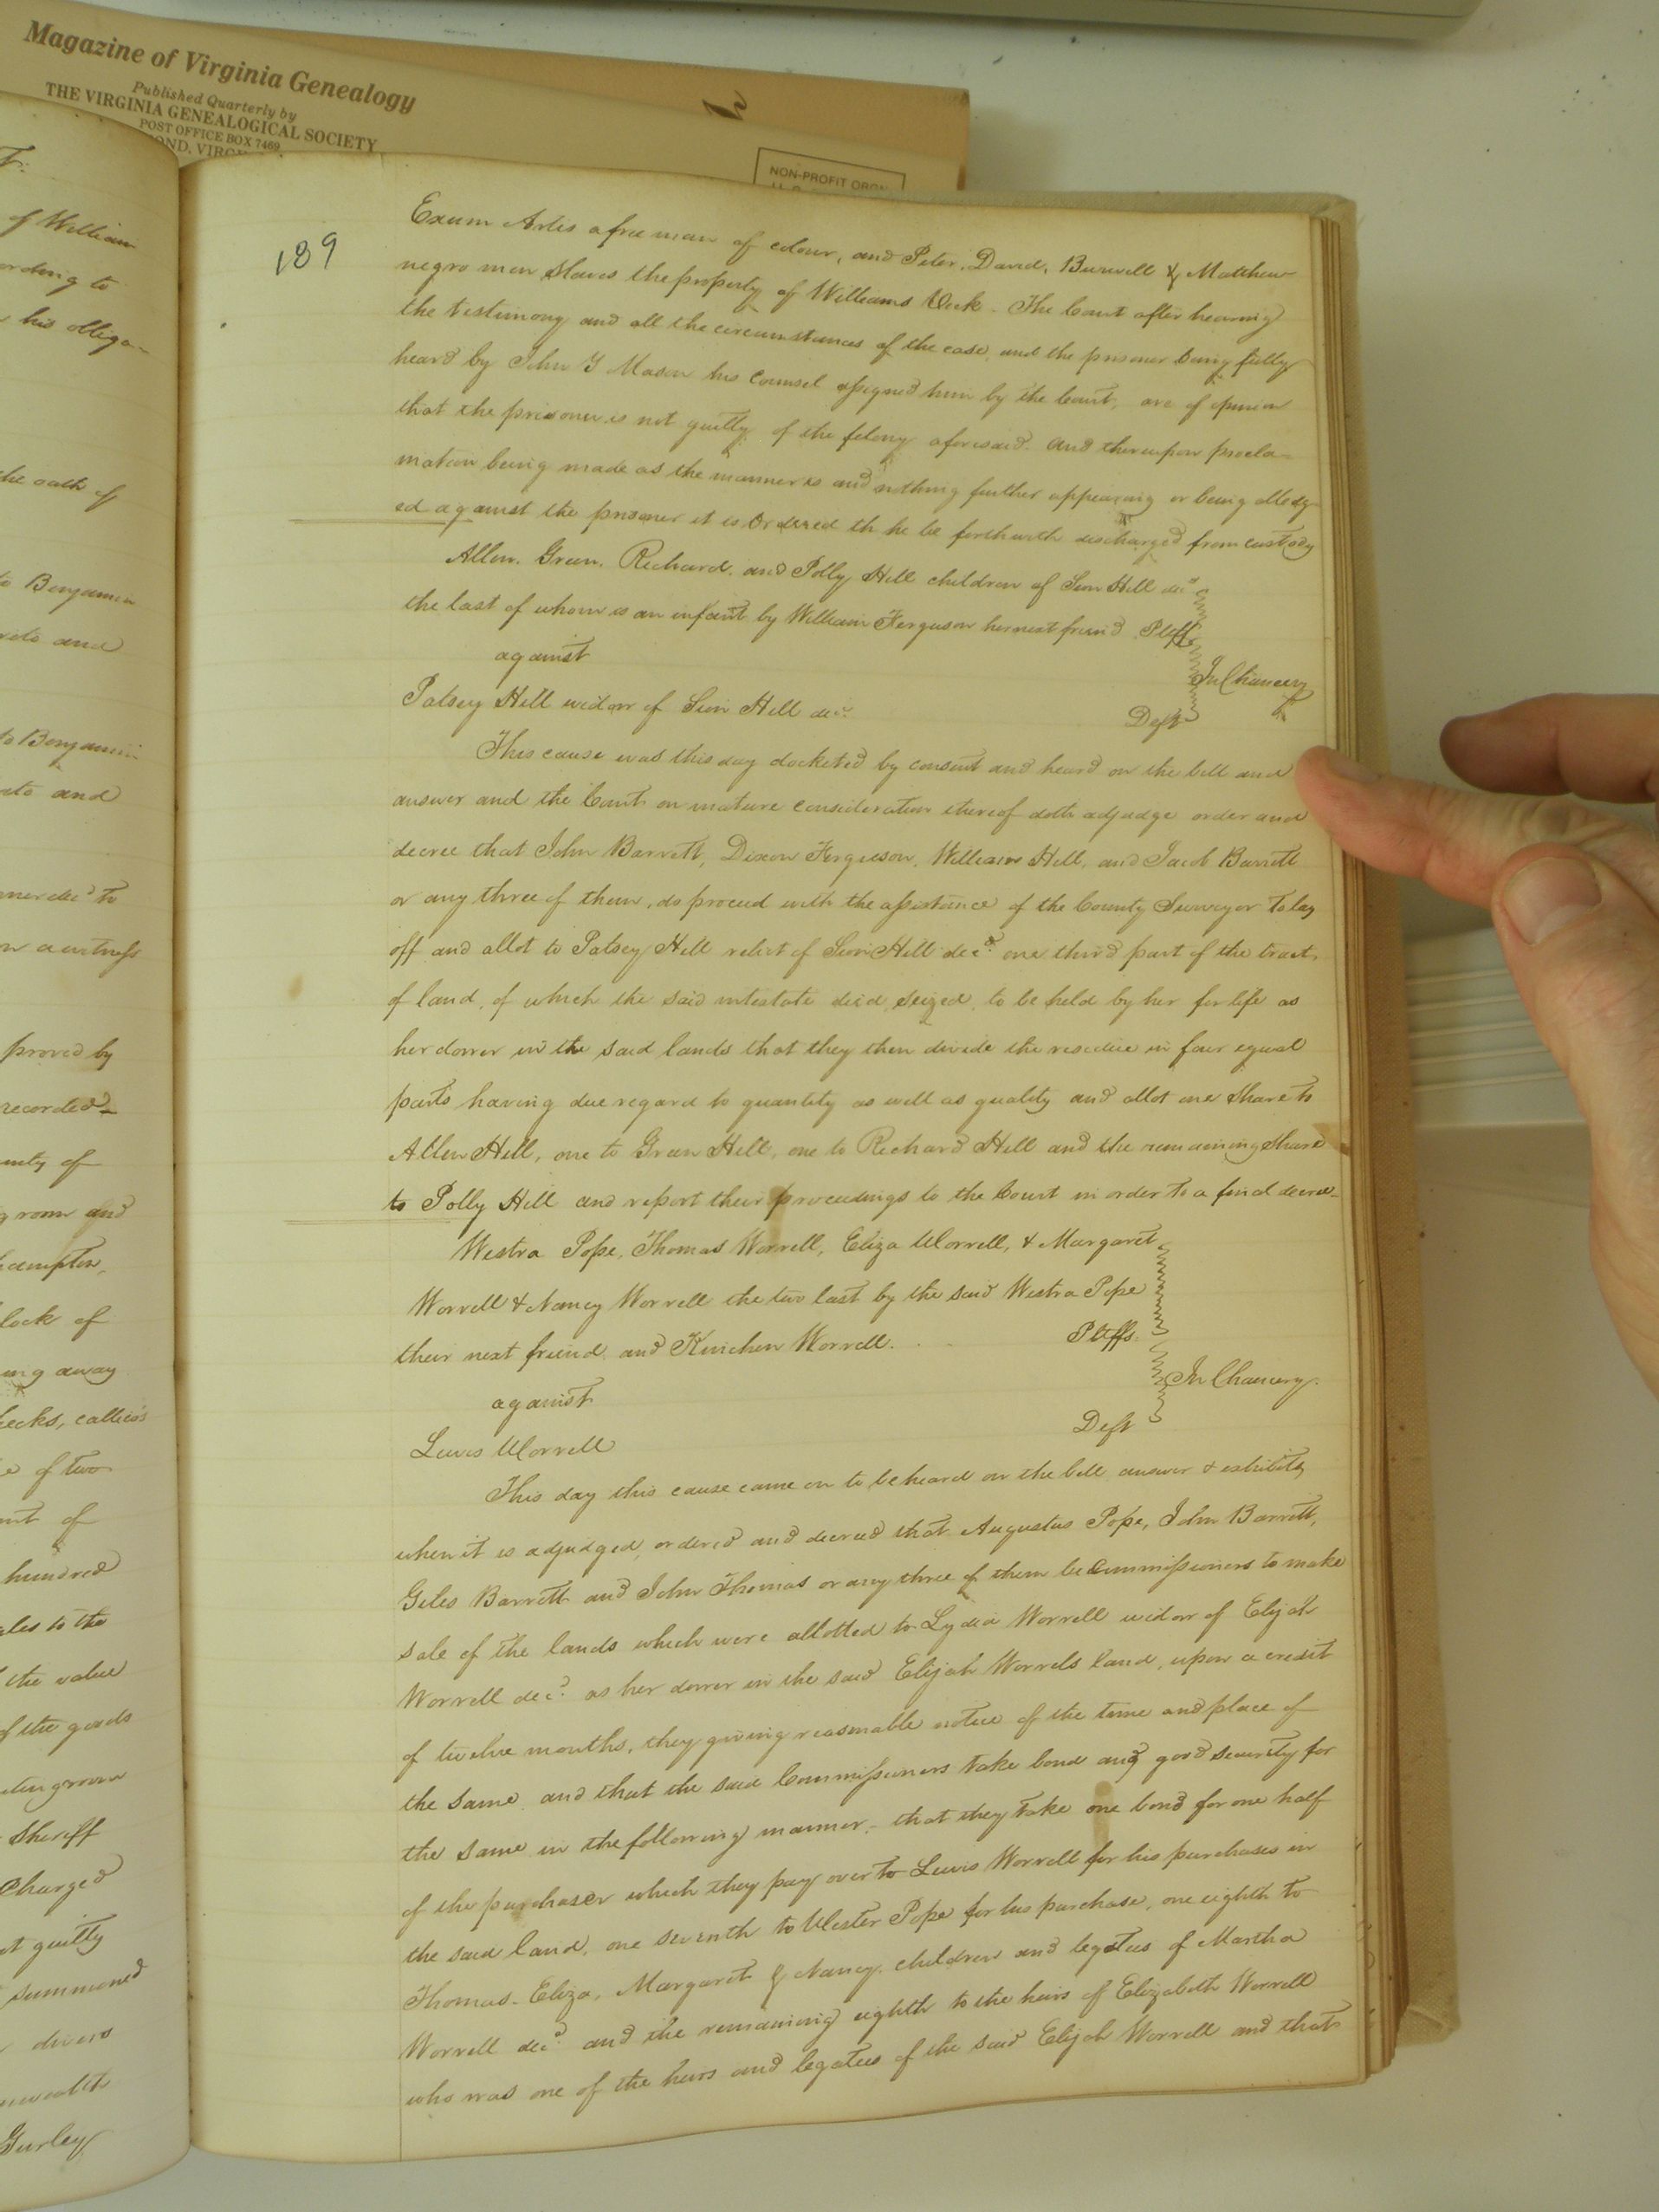 Magazine of Virginia Genealogy
Published Quarterly by
THE VIRGINIA GENEALOGICAL SOCIETY
POST OFFICE BOX 7469
OND, VIRG
NON-PROFIT ORGN
of William
ording to
his obliga-
the oath of
to Benjamin
and
to Benjamin
and
decd to
a witness
proved by
recorded
of
room and
hampton,
lock of
ing away
callicos
of two
of
hundred
to the
the value
of the goods
Sheriff
Charged
guilty
summoned
divers
Gurley
189
Exum Artis a free man of colour, and Peter, David, Burwell & Matthew
negro men slaves the property of Williams Vick. The Court after hearing
the testimony and all the circumstances of the case, and the prisoner being fully
heard by John Y Mason his counsel assigned him by the Court, are of opinion
that the prisoner is not guilty of the felony aforesaid. And thereupon procla-
mation being made as the manner is and nothing further appearing or being alledg-
ed against the prisoner it is Ordered th he be forthwith discharged from custody
Allen, Green, Richard, and Polly Hill children of Sion Hill decd
the last of whom is an infant by William Ferguson her next friend Pltffs
against
In Chancery
Patsey Hill widow of Sion Hill decd. Deft
This cause was this day docketed by consent and heard on the bill and
answer and the Court on mature consideration thereof doth adjudge order and
decree that John Barrett, Dixon Ferguson, William Hill, and Jacob Barrett
or any three of them, do proceed with the assistance of the County Surveyor to lay
off and allot to Patsey Hill relict of Sion Hill decd. one third part of the tract
of land, of which the said intestate died, seized, to be held by her for life as
her dower in the said lands that they then divide the residue in four equal
parts having due regard to quantity as well as quality and allot one share to
Allen Hill, one to Green Hill, one to Richard Hill and the remaining share
to Polly Hill and report their proceedings to the Court in order to a final decree
Westra Pope, Thomas Worrell, Eliza Worrell, & Margaret
Worrell & Nancy Worrell the two last by the said Westra Pope
their next friend, and Kinchen Worrell. Pltffs.
In Chancery.
against
Deft
Lewis Worrell
This day this cause came on to be heard on the bill, answer & exhibits
when it is adjudged, ordered and decreed that Augustus Pope, John Barrett,
Giles Barrett and John Thomas or any three of them be Commissioners to make
sale of the lands which were allotted to Lydia Worrell widow of Elijah
Worrell decd. as her dower in the said Elijah Worrels land, upon a credit
of twelve months, they giving reasonable notice of the time and place of
the same, and that the said Commissioners take bond and good security for
the same in the following manner, that they take one bond for one half
of the purchaser which they pay over to Lewis Worrell for his purchases in
the said land, one seventh to Wester Pope for his purchase, one eighth to
Thomas, Eliza, Margaret & Nancy children and legatees of Martha
Worrell decd and the remaining eighth to the heirs of Elizabeth Worrell
who was one of the heirs and legatees of the said Elijah Worrell and that